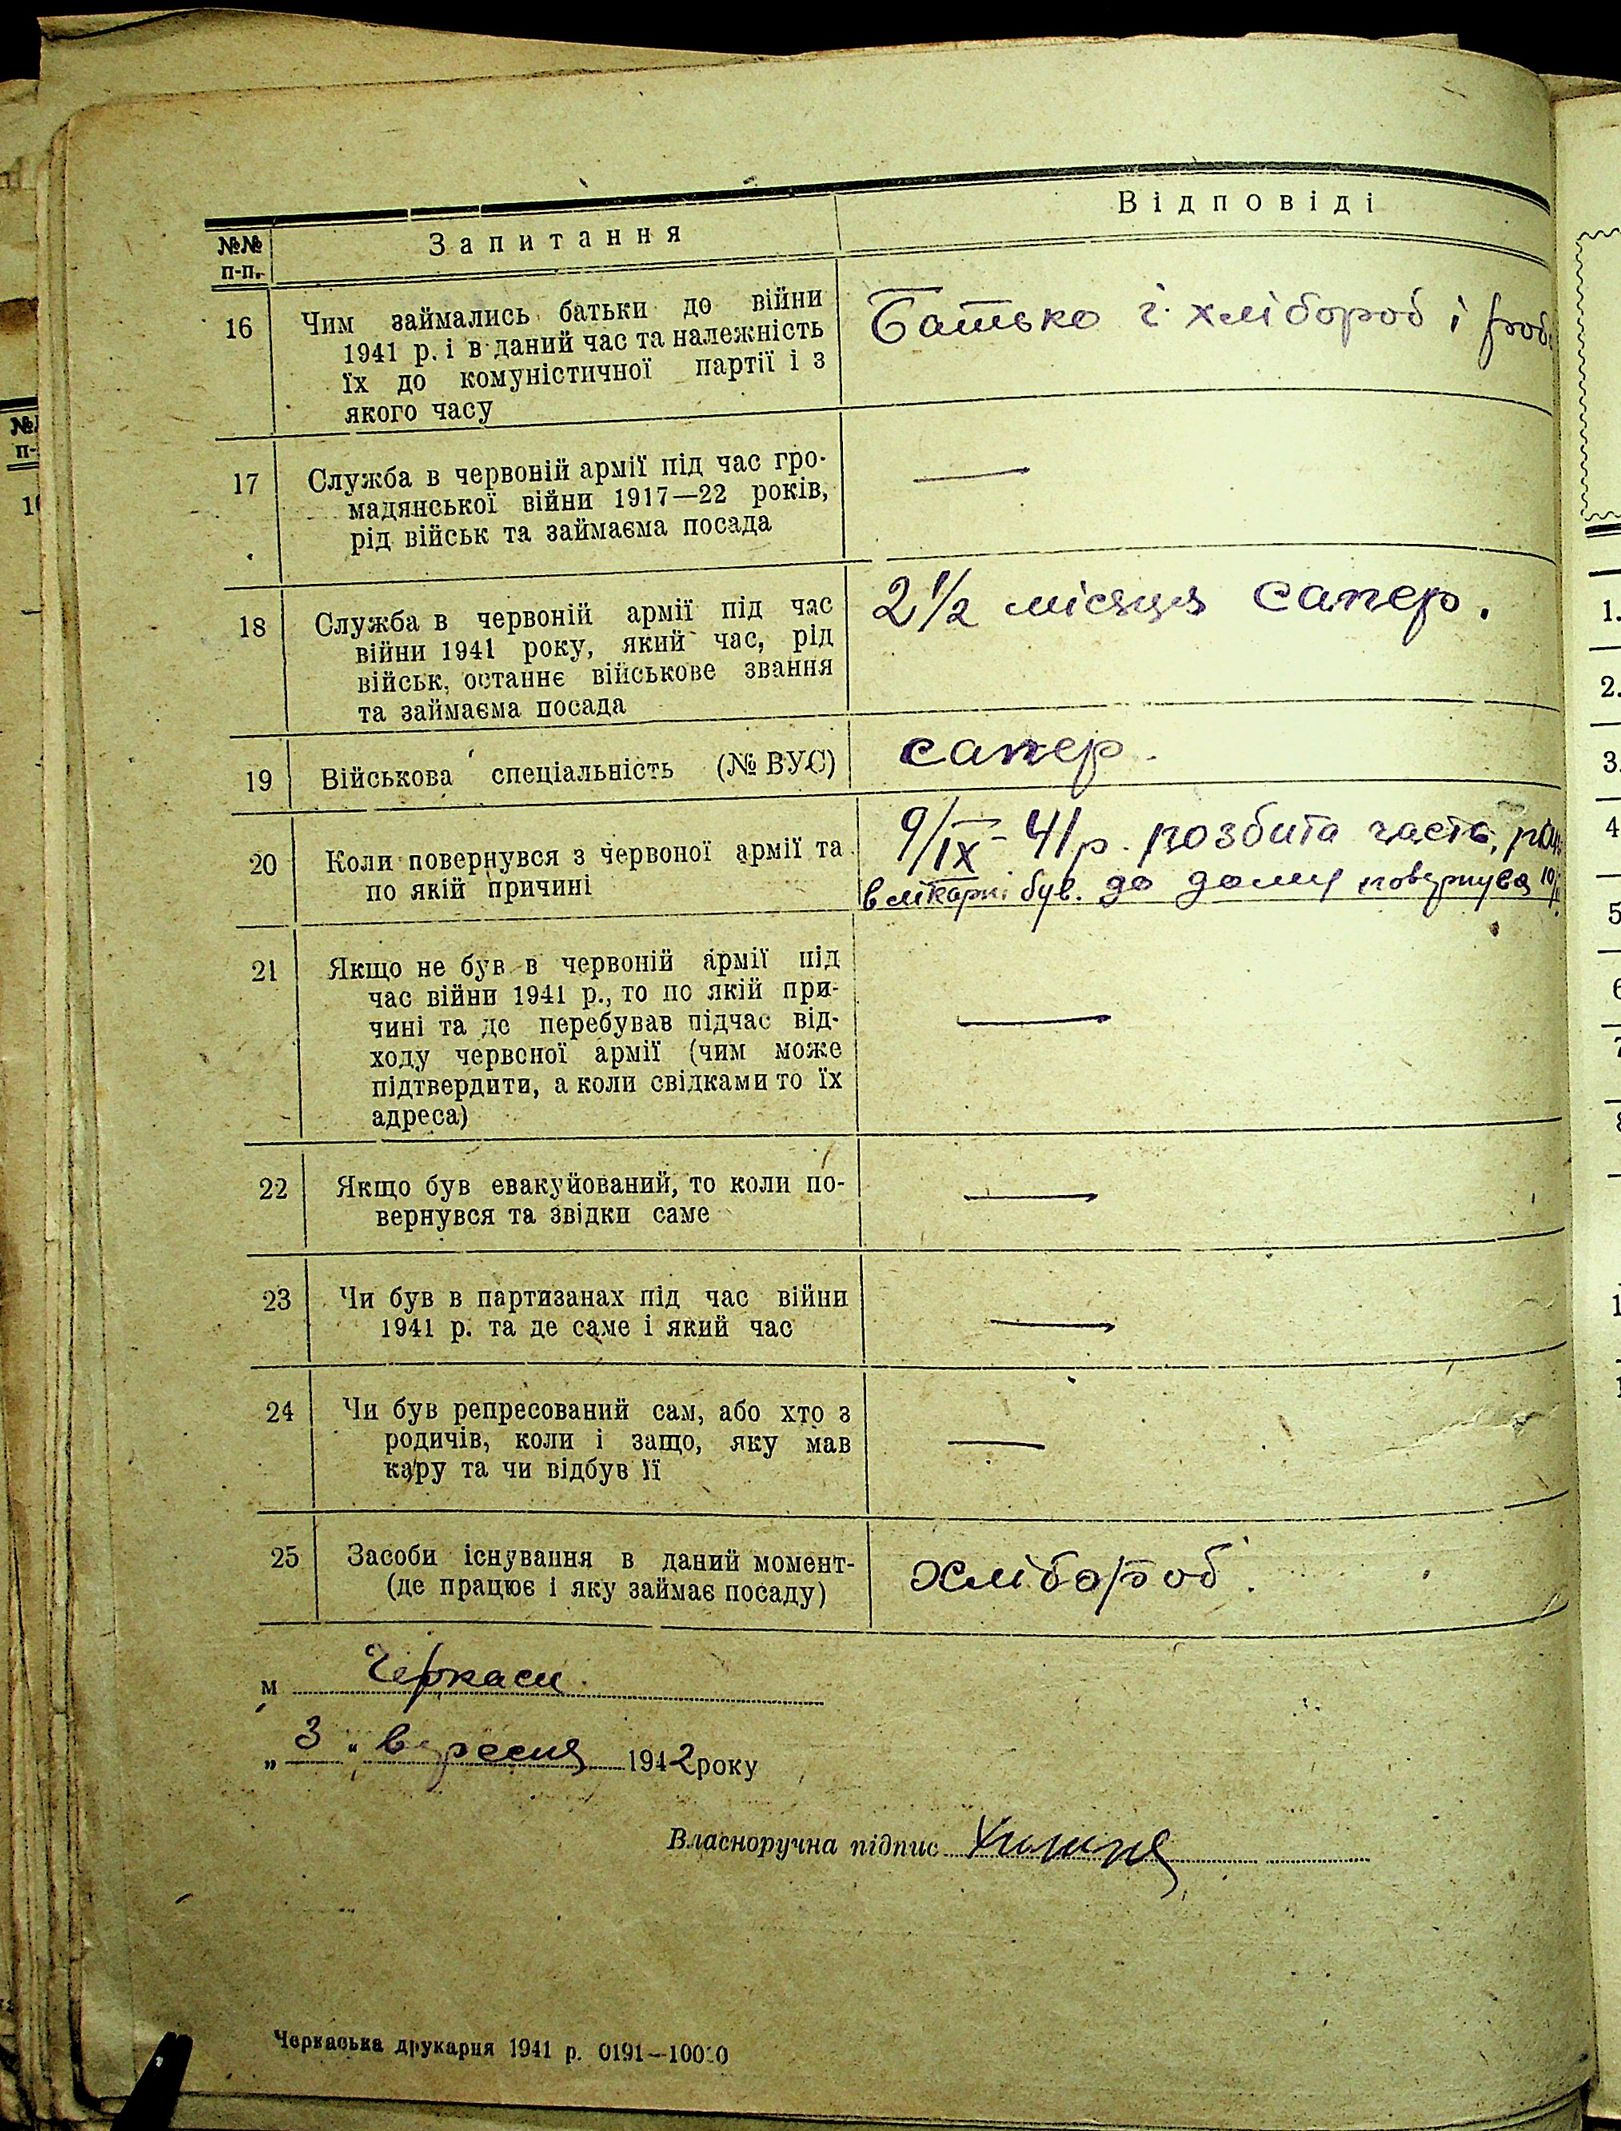 №№ п-п.
Запитання
Відповіді
16
Чим займались батьки до війни
1941 р. і в даний час та належність
їх до комуністичної партії і з
якого часу
Батько і хлібороб і роб
17
Служба в червоній армії під час гро-
мадянської війни 1917—22 років,
рід військ та займаєма посада
—
18
Служба в червоній армії під час
війни 1941 року, який час, рід
військ, останнє військове звання
та займаєма посада
2 1/2 місяця сапер.
19
Військова спеціальність (№ ВУС)
сапер.
20
Коли повернувся з червоної армії та
по якій причині
9/IX - 41 р. розбита часть,
в лікарні був. до дому повернувся 10/
21
Якщо не був в червоній армії під
час війни 1941 р., то по якій при-
чині та де перебував підчас від-
ходу червоної армії (чим може
підтвердити, а коли свідками то їх
адреса)
—
22
Якщо був евакуйований, то коли по-
вернувся та звідки саме
—
23
Чи був в партизанах під час війни
1941 р. та де саме і який час
—
24
Чи був репресований сам, або хто з
родичів, коли і защо, яку мав
кару та чи відбув її
—
25
Засоби існування в даний момент-
(де працює і яку займає посаду)
хлібороб.
м Черкаси.
„ 3 " вересня 1942 року
Власноручна підпис
Черкаська друкарня 1941 р. 0191—10000
№
п-
1.
2.
3.
4
5
6
7
8